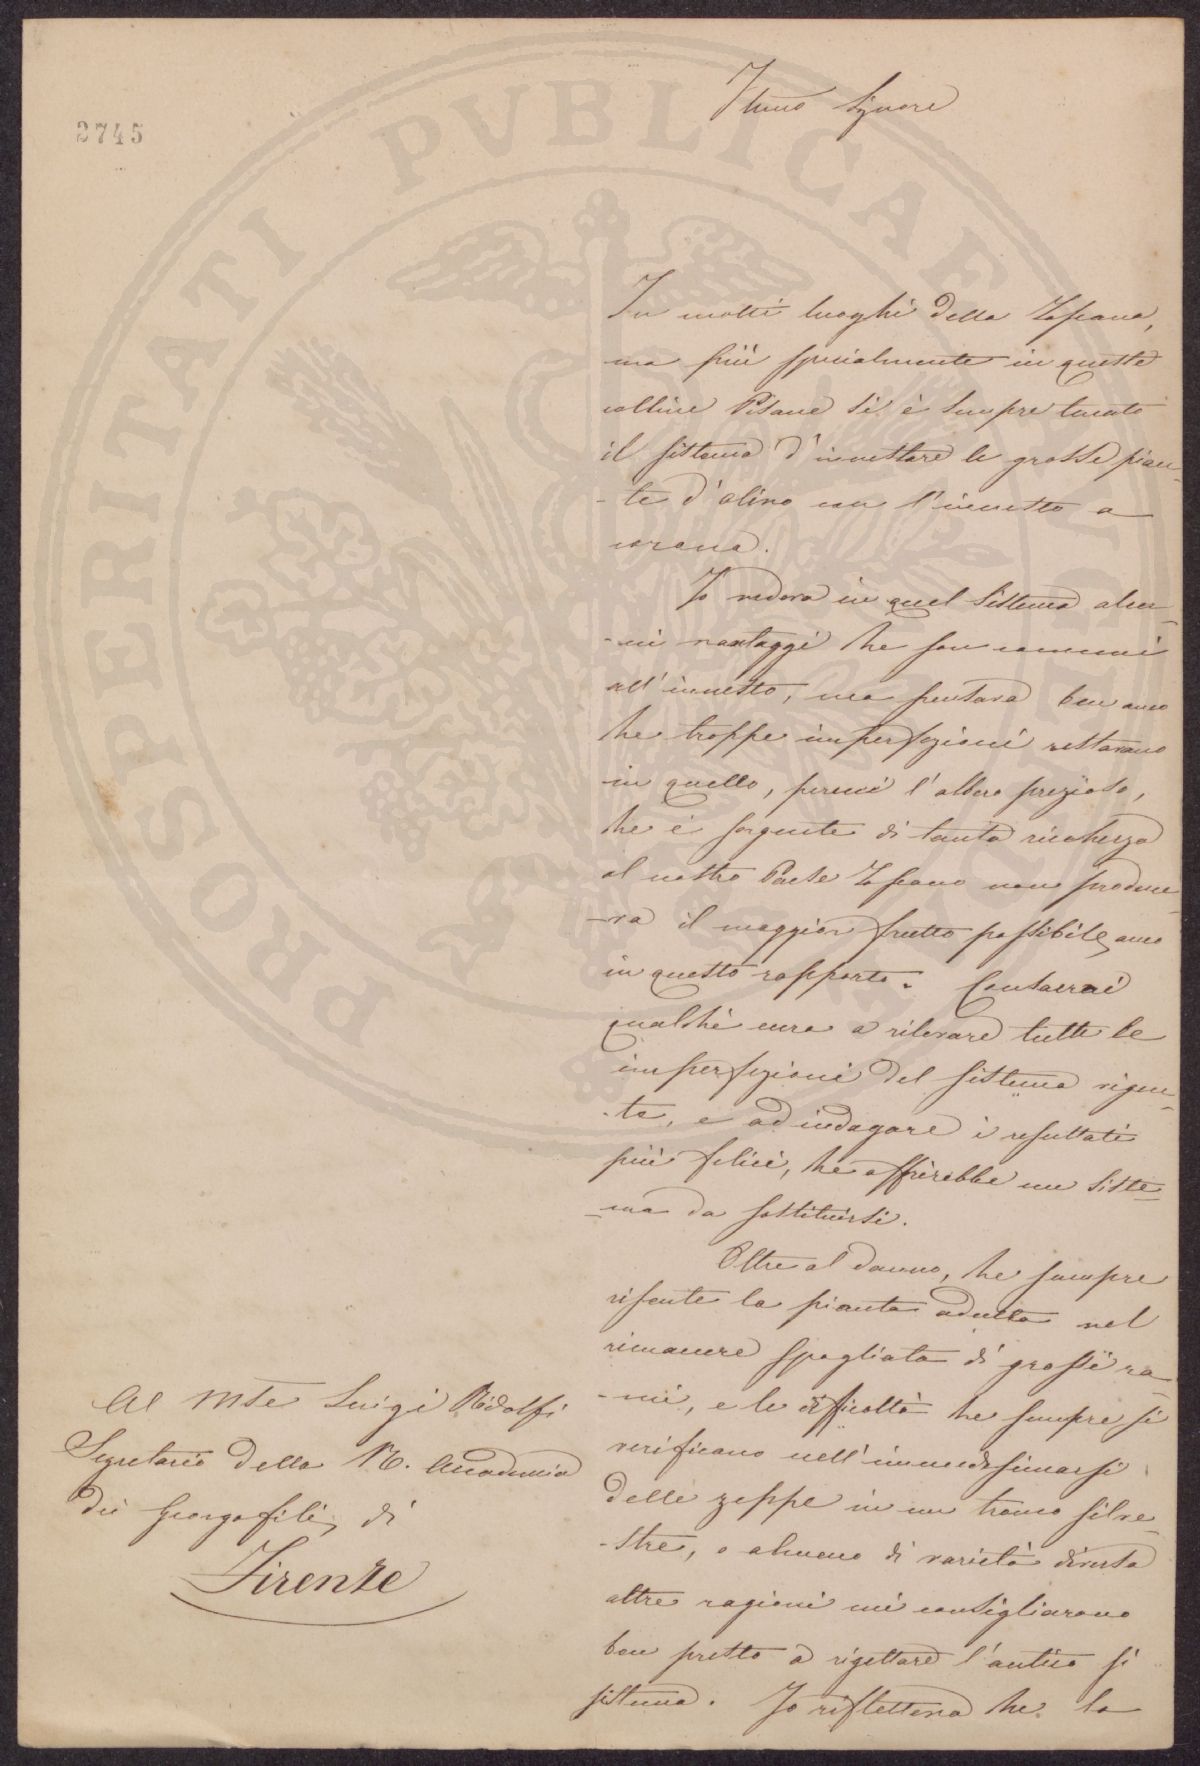 2745
Illmo Signore
In molti luoghi della Toscana,
ma più specialmente in queste
colline Pisane si è sempre tenuto
il sistema d'innestare le grosse pian-
-te d'olivo con l'innesto a
corona.
Io vedeva in quel sistema alcu-
-ni vantaggi che son comuni
all'innesto, ma pensava ben anco
che troppe imperfezioni restavano
in quello, perciò l'albero prezioso,
che è sorgente di tanta ricchezza
al nostro Paese Toscano non produce-
-va il maggior frutto possibile, anco
in questo rapporto. Consacrai
qualche cura a rilevare tutte le
imperfezioni del sistema vigen-
-te, e ad indagare i resultati
più felici, che offrirebbe un siste-
-ma da sostituirsi.
Oltre al danno, che sempre
risente la pianta adulta nel
rimanere spogliata di grossi ra-
-mi, e le difficoltà che sempre si
verificano nell'immedesimarsi
delle zeppe in un tronco silve-
-stre, o almeno di varietà diversa
altre ragioni mi consigliarono
ben presto a rigettare l'antico si
sistema. Io rifletteva che la
Al Mse Luigi Ridolfi
Segretario della R. Accademia
dei Georgofili, di
Firenze
PROSPERITATI PVBLICAE AVGENDAE